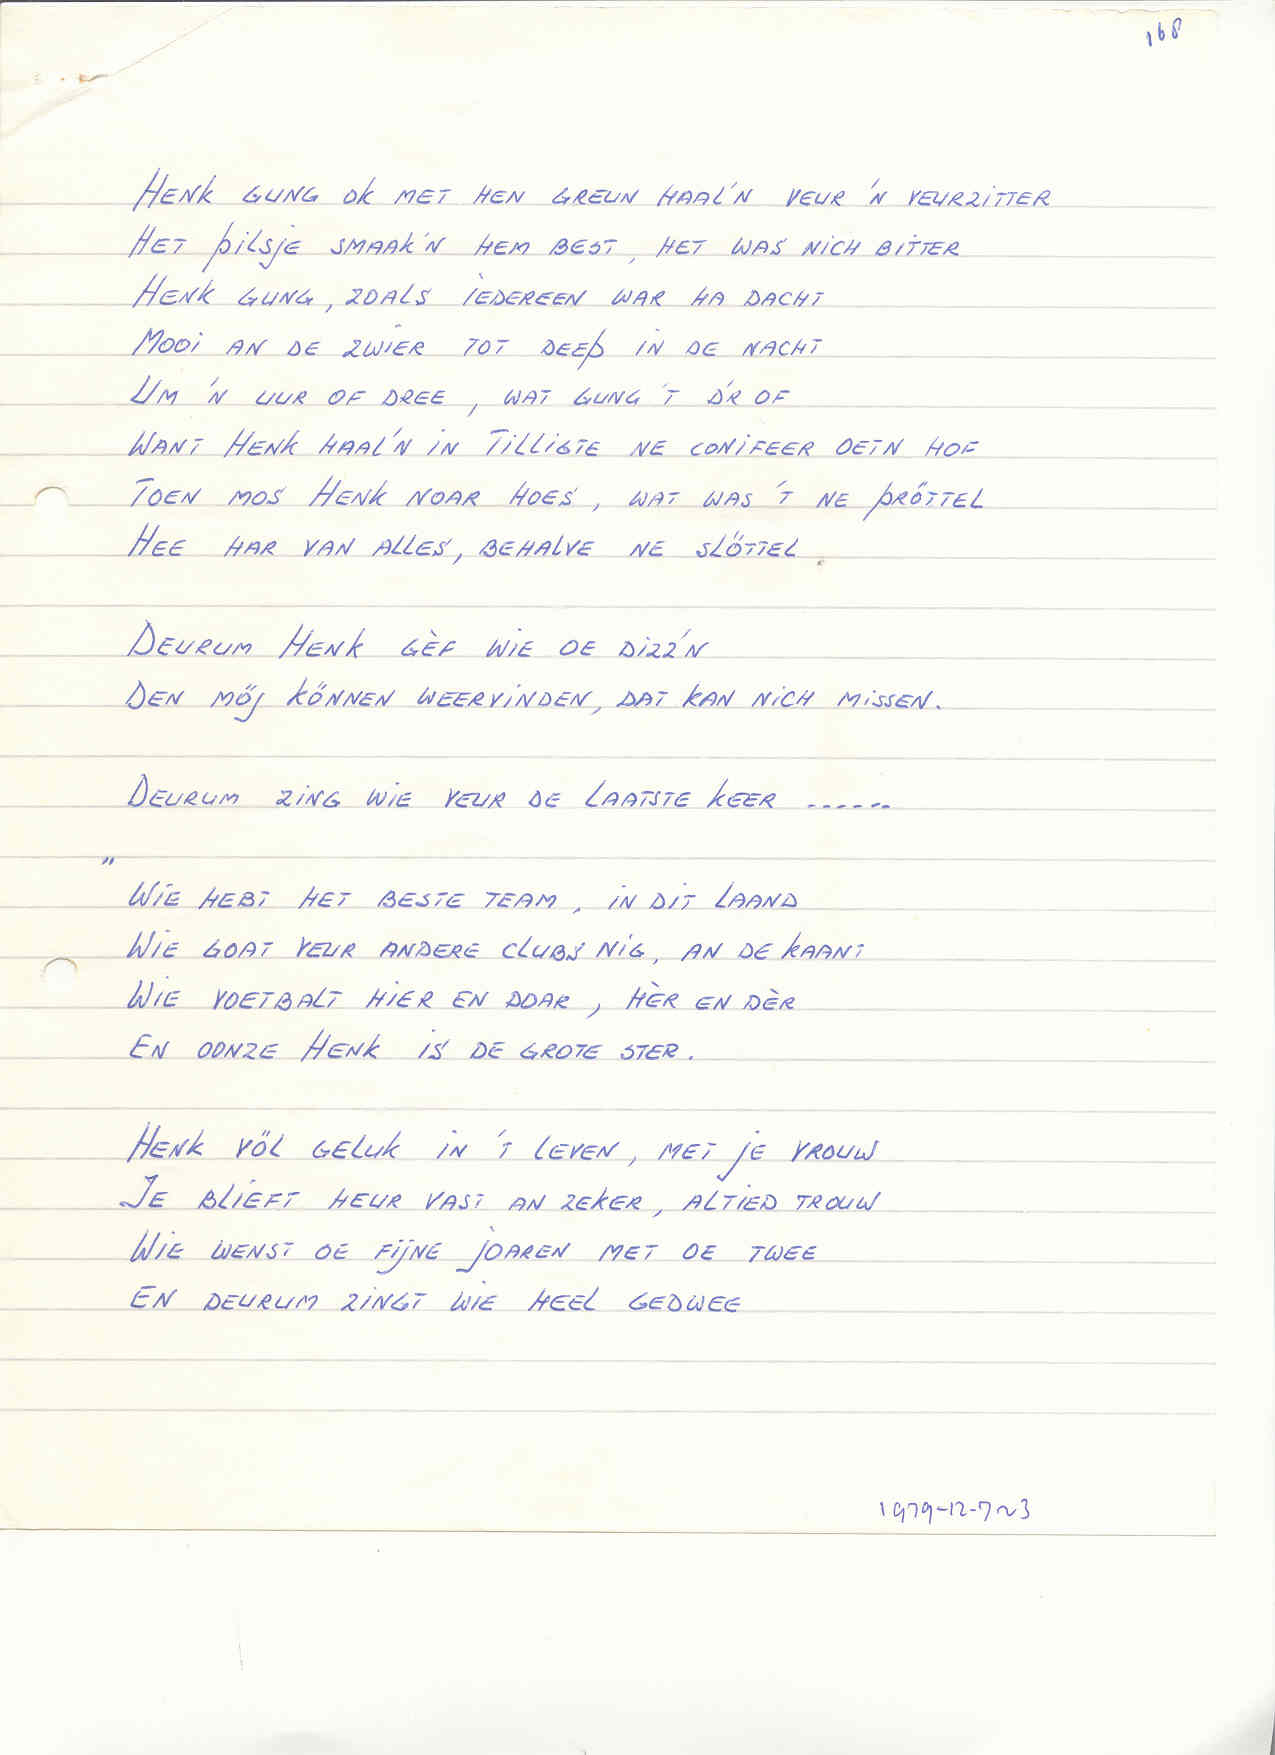 168
Henk gung ok met hen greun haal'n veur 'n veurzitter
Het pilsje smaak'n hem best, het was nich bitter
Henk gung, zoals iedereen war ha dacht
Mooi an de zwier tot deep in de nacht
Um 'n uur of dree, wat gung 't d'r of
Want Henk haal'n in Tilligte ne conifeer oetn hof
Toen mos Henk noar hoes, wat was 't ne pröttel
Hee har van alles, behalve ne slöttel
Deurum Henk gèf wie oe dizz'n
Den möj können weervinden, dat kan nich missen.
Deurum zing wie veur de laatste keer ......
"
Wie hebt het beste team, in dit laand
Wie goat veur andere clubs nig, an de kaant
Wie voetbalt hier en doar, hèr en dèr
En oonze Henk is de grote ster.
Henk völ geluk in 't leven, met je vrouw
Je blieft heur vast an zeker, altied trouw
Wie wenst oe fijne joaren met oe twee
En deurum zingt wie heel gedwee
1979-12-7~3